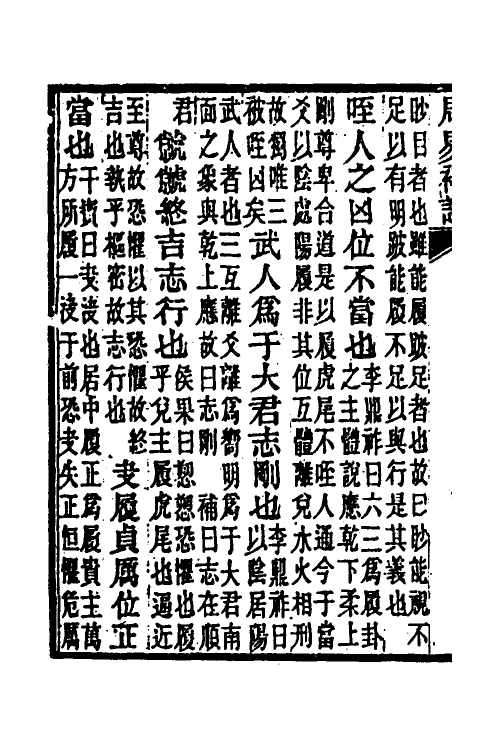 周易補註
眇目者也雖能履跛足者也故曰眇能視不
足以有明跛能履不足以與行是其義也
咥人之凶位不當也李鼎祚曰六三爲履卦
之主體說應乾下柔上
剛尊卑合道是以履虎尾不咥人通今于當
爻以陰處陽履非其位互體離兌水火相刑
故獨唯三
被咥凶矣武人爲于大君志剛也李鼎祚曰
以陰居陽
武人者也三互離爻離爲嚮明爲于大君南
面之象與乾上應故曰志剛　補曰志在順
君愬愬終吉志行也侯果曰愬愬恐懼也履
乎兌主履虎尾也逼近
至尊故恐懼以其恐懼故終
吉也執乎樞密故志行也夬履貞厲位正
當也干寶曰夬決也居中履正爲履貴主萬
方所履一決于前恐夬失正恒懼危厲